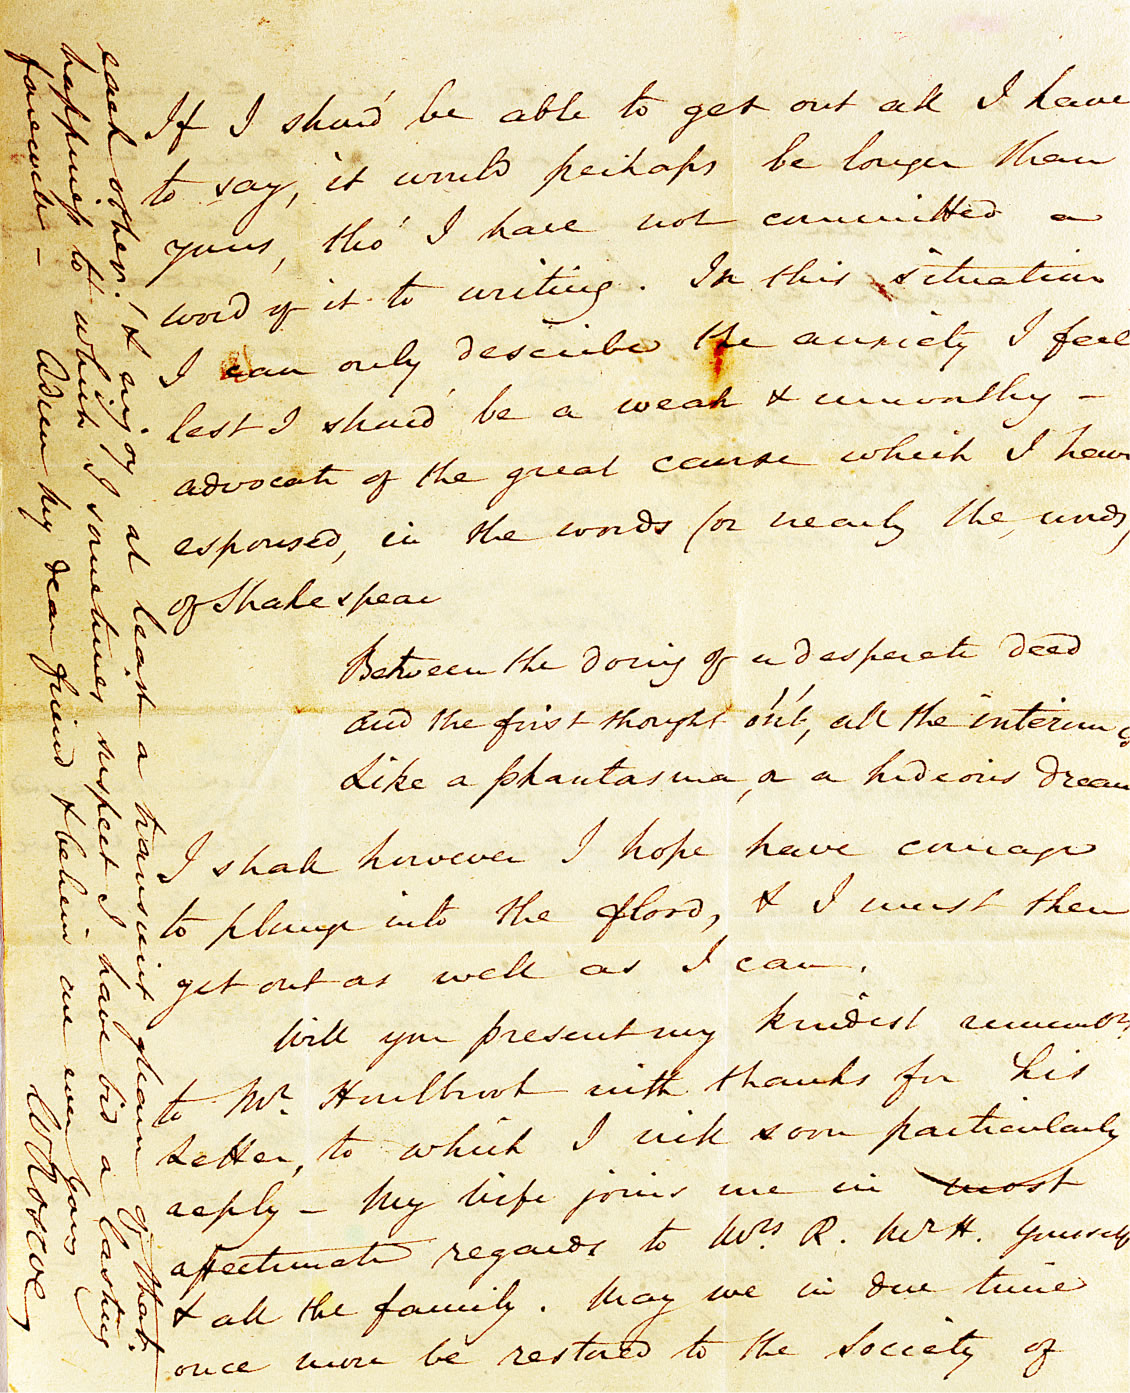 If I shou'd be able to get out all I have
to say, it would perhaps be longer than
yours, tho' I have not committed a
word of it to writing. In this situation
I can only describe the anxiety I feel
lest I shou'd be a weak & unworthy –
advocate of the great cause which I have
espoused, in the words (or nearly the words)
of Shakespear
Between the doing of a desperate deed
and the first thought on't, all the interim is
Like a phantasma, or a hideous dream
I shall however I hope have courage
to plunge into the flood, & I must then
get out as well as I can.
Will you present my kindest
to Mr. Houlbrook with thanks for his
Letter, to which I will soon particularly
reply – My wife joins me in most
affectionate regards to Mrs. R. Mr H. yourself
& all the family. May we in due time
once more be restored to the Society of
each other! & enjoy at least a transient gleam of that
happiness to which I sometimes suspect I have bid a lasting
farewell – Adieu my dear friend & believe me ever yours
W Roscoe